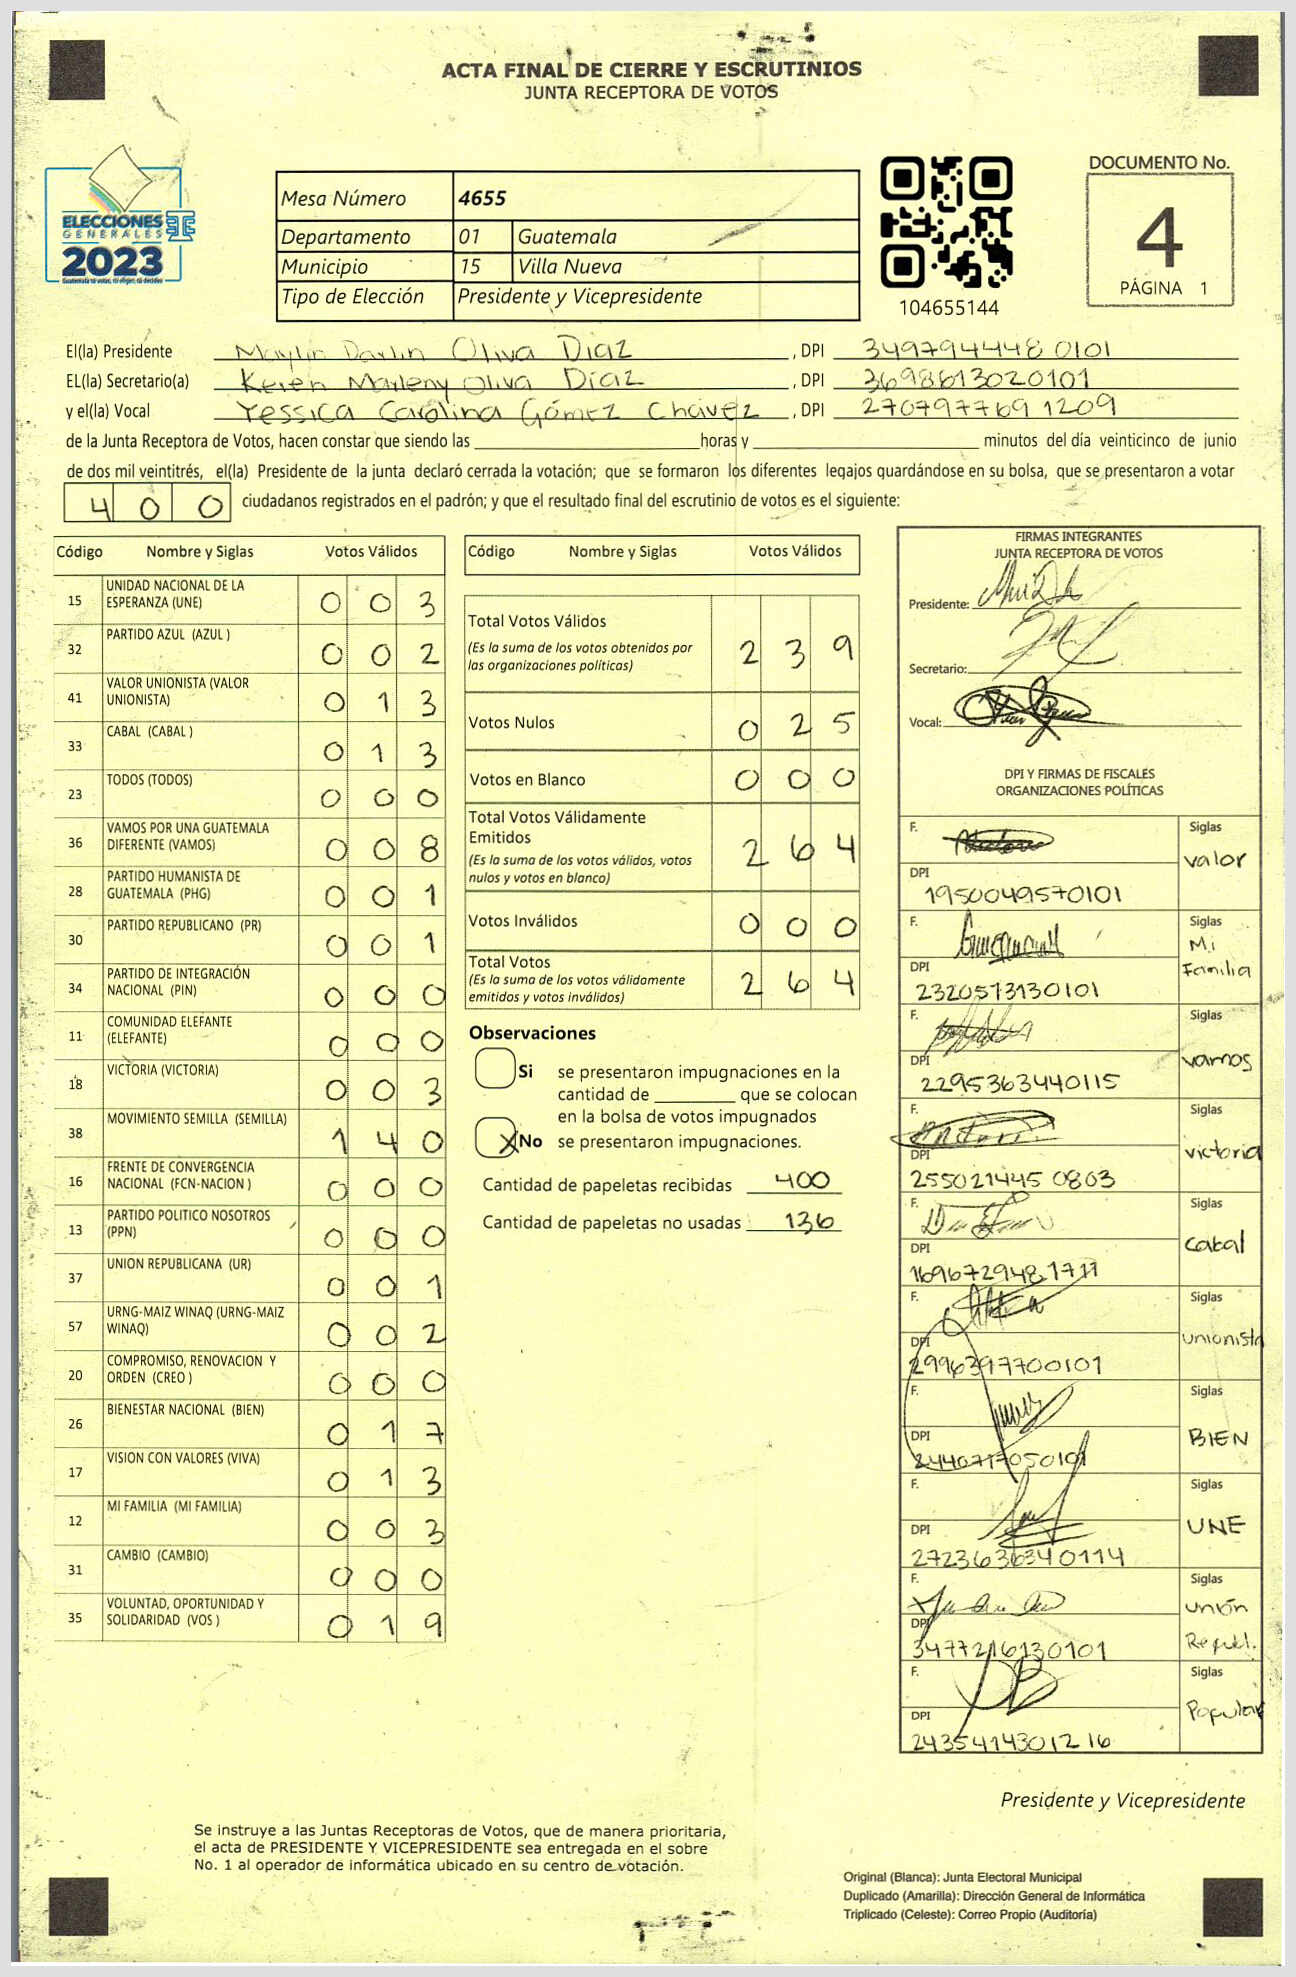 ACTA FINAL DE CIERRE Y ESCRUTINIOS
JUNTA RECEPTORA DE VOTOS
ELECCIONES
GENERALES
2023
Guatemala tú votas, tú eliges, tú decides
Mesa Número 4655
Departamento 01 Guatemala
Municipio 15 Villa Nueva
Tipo de Elección Presidente y Vicepresidente
104655144
DOCUMENTO No.
4
PÁGINA 1
El(la) Presidente Maylin Darlin Oliva Díaz , DPI 349794448 0101
EL(la) Secretario(a) Keren Marleny Oliva Díaz , DPI 3698613020101
y el(la) Vocal Yessica Carolina Gómez Chávez , DPI 270797769 1209
de la Junta Receptora de Votos, hacen constar que siendo las horas y minutos del día veinticinco de junio
de dos mil veintitrés, el(la) Presidente de la junta declaró cerrada la votación; que se formaron los diferentes legajos quardándose en su bolsa, que se presentaron a votar
400 ciudadanos registrados en el padrón; y que el resultado final del escrutinio de votos es el siguiente:
Código Nombre y Siglas Votos Válidos
15 UNIDAD NACIONAL DE LA
ESPERANZA (UNE) 0 0 3
32 PARTIDO AZUL (AZUL ) 0 0 2
41 VALOR UNIONISTA (VALOR
UNIONISTA) 0 1 3
33 CABAL (CABAL ) 0 1 3
23 TODOS (TODOS) 0 0 0
36 VAMOS POR UNA GUATEMALA
DIFERENTE (VAMOS) 0 0 8
28 PARTIDO HUMANISTA DE
GUATEMALA (PHG) 0 0 1
30 PARTIDO REPUBLICANO (PR) 0 0 1
34 PARTIDO DE INTEGRACIÓN
NACIONAL (PIN) 0 0 0
11 COMUNIDAD ELEFANTE
(ELEFANTE) 0 0 0
18 VICTORIA (VICTORIA) 0 0 3
38 MOVIMIENTO SEMILLA (SEMILLA) 1 4 0
16 FRENTE DE CONVERGENCIA
NACIONAL (FCN-NACION ) 0 0 0
13 PARTIDO POLITICO NOSOTROS
(PPN) 0 0 0
37 UNION REPUBLICANA (UR) 0 0 1
57 URNG-MAIZ WINAQ (URNG-MAIZ
WINAQ) 0 0 2
20 COMPROMISO, RENOVACION Y
ORDEN (CREO ) 0 0 0
26 BIENESTAR NACIONAL (BIEN) 0 1 7
17 VISION CON VALORES (VIVA) 0 1 3
12 MI FAMILIA (MI FAMILIA) 0 0 3
31 CAMBIO (CAMBIO) 0 0 0
35 VOLUNTAD, OPORTUNIDAD Y
SOLIDARIDAD (VOS ) 0 1 9
Código Nombre y Siglas Votos Válidos
Total Votos Válidos
(Es la suma de los votos obtenidos por
las organizaciones políticas) 2 3 9
Votos Nulos 0 2 5
Votos en Blanco 0 0 0
Total Votos Válidamente
Emitidos
(Es la suma de los votos válidos, votos
nulos y votos en blanco) 2 6 4
Votos Inválidos 0 0 0
Total Votos
(Es la suma de los votos válidamente
emitidos y votos inválidos) 2 6 4
Observaciones
Si se presentaron impugnaciones en la
cantidad de que se colocan
en la bolsa de votos impugnados
X No se presentaron impugnaciones.
Cantidad de papeletas recibidas 400
Cantidad de papeletas no usadas 136
FIRMAS INTEGRANTES
JUNTA RECEPTORA DE VOTOS
Presidente:
Secretario:
Vocal:
DPI Y FIRMAS DE FISCALES
ORGANIZACIONES POLÍTICAS
F. Siglas
valor
DPI
1950049570101
F. Siglas
Mi
Familia
DPI
2320573130101
F. Siglas
vamos
DPI
2295363440115
F. Siglas
victoria
DPI
255021445 0803
F. Siglas
cabal
DPI
1696729481711
F. Siglas
unionista
DPI
2996397700101
F. Siglas
BIEN
DPI
2440717050101
F. Siglas
UNE
DPI
2723636340114
F. Siglas
unión
Republ.
DPI
3477216130101
F. Siglas
Popular
DPI
2435414301216
Presidente y Vicepresidente
Se instruye a las Juntas Receptoras de Votos, que de manera prioritaria,
el acta de PRESIDENTE Y VICEPRESIDENTE sea entregada en el sobre
No. 1 al operador de informática ubicado en su centro de votación.
Original (Blanca): Junta Electoral Municipal
Duplicado (Amarilla): Dirección General de Informática
Triplicado (Celeste): Correo Propio (Auditoría)